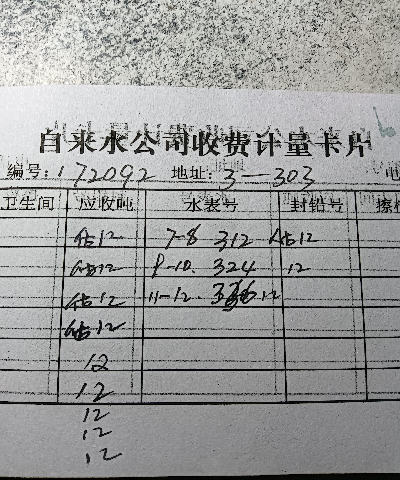 自来水公司收费计量卡片
编号: 172092 地址: 3—303 电
卫生间 应收吨 水表号 封铅号 擦
估12 7-8 312 估12
估12 9-10. 324 12
估12 11-12. 336 12
估12
12
12
12
12
12